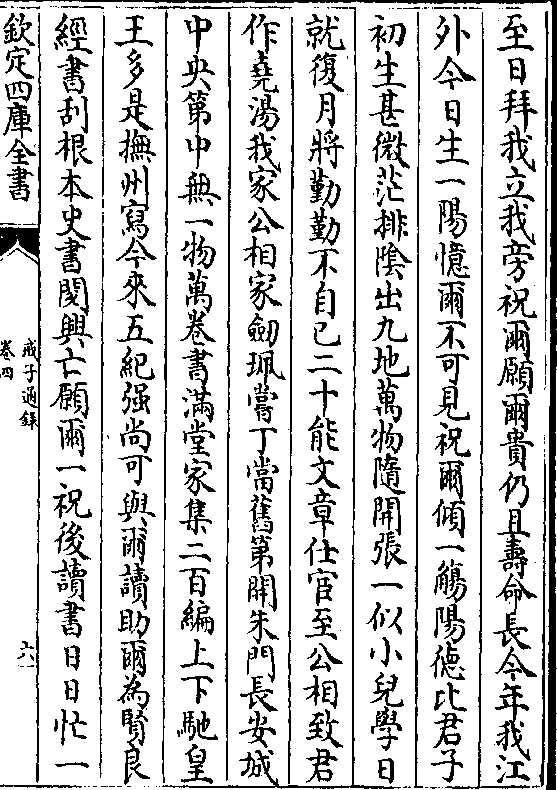 至日拜我立我旁祝爾願爾貴仍且壽命長今年我江
外今日生一陽憶爾不可見祝爾傾一觴陽德比君子
初生甚微茫排陰出九地萬物隨開張一似小兒學日
就復月將勤勤不自已二十能文章仕宦至公相致君
作堯湯我家公相家劒珮嘗丁當舊第開朱門長安城
中央第中無一物萬卷書滿堂家集二百編上下馳皇
王多是撫州寫今來五紀强尚可與爾讀助爾為賢良
經書刮根本史書閱興亡願爾一祝後讀書日日忙一
欽定四庫全書
戒子通錄
卷四
六